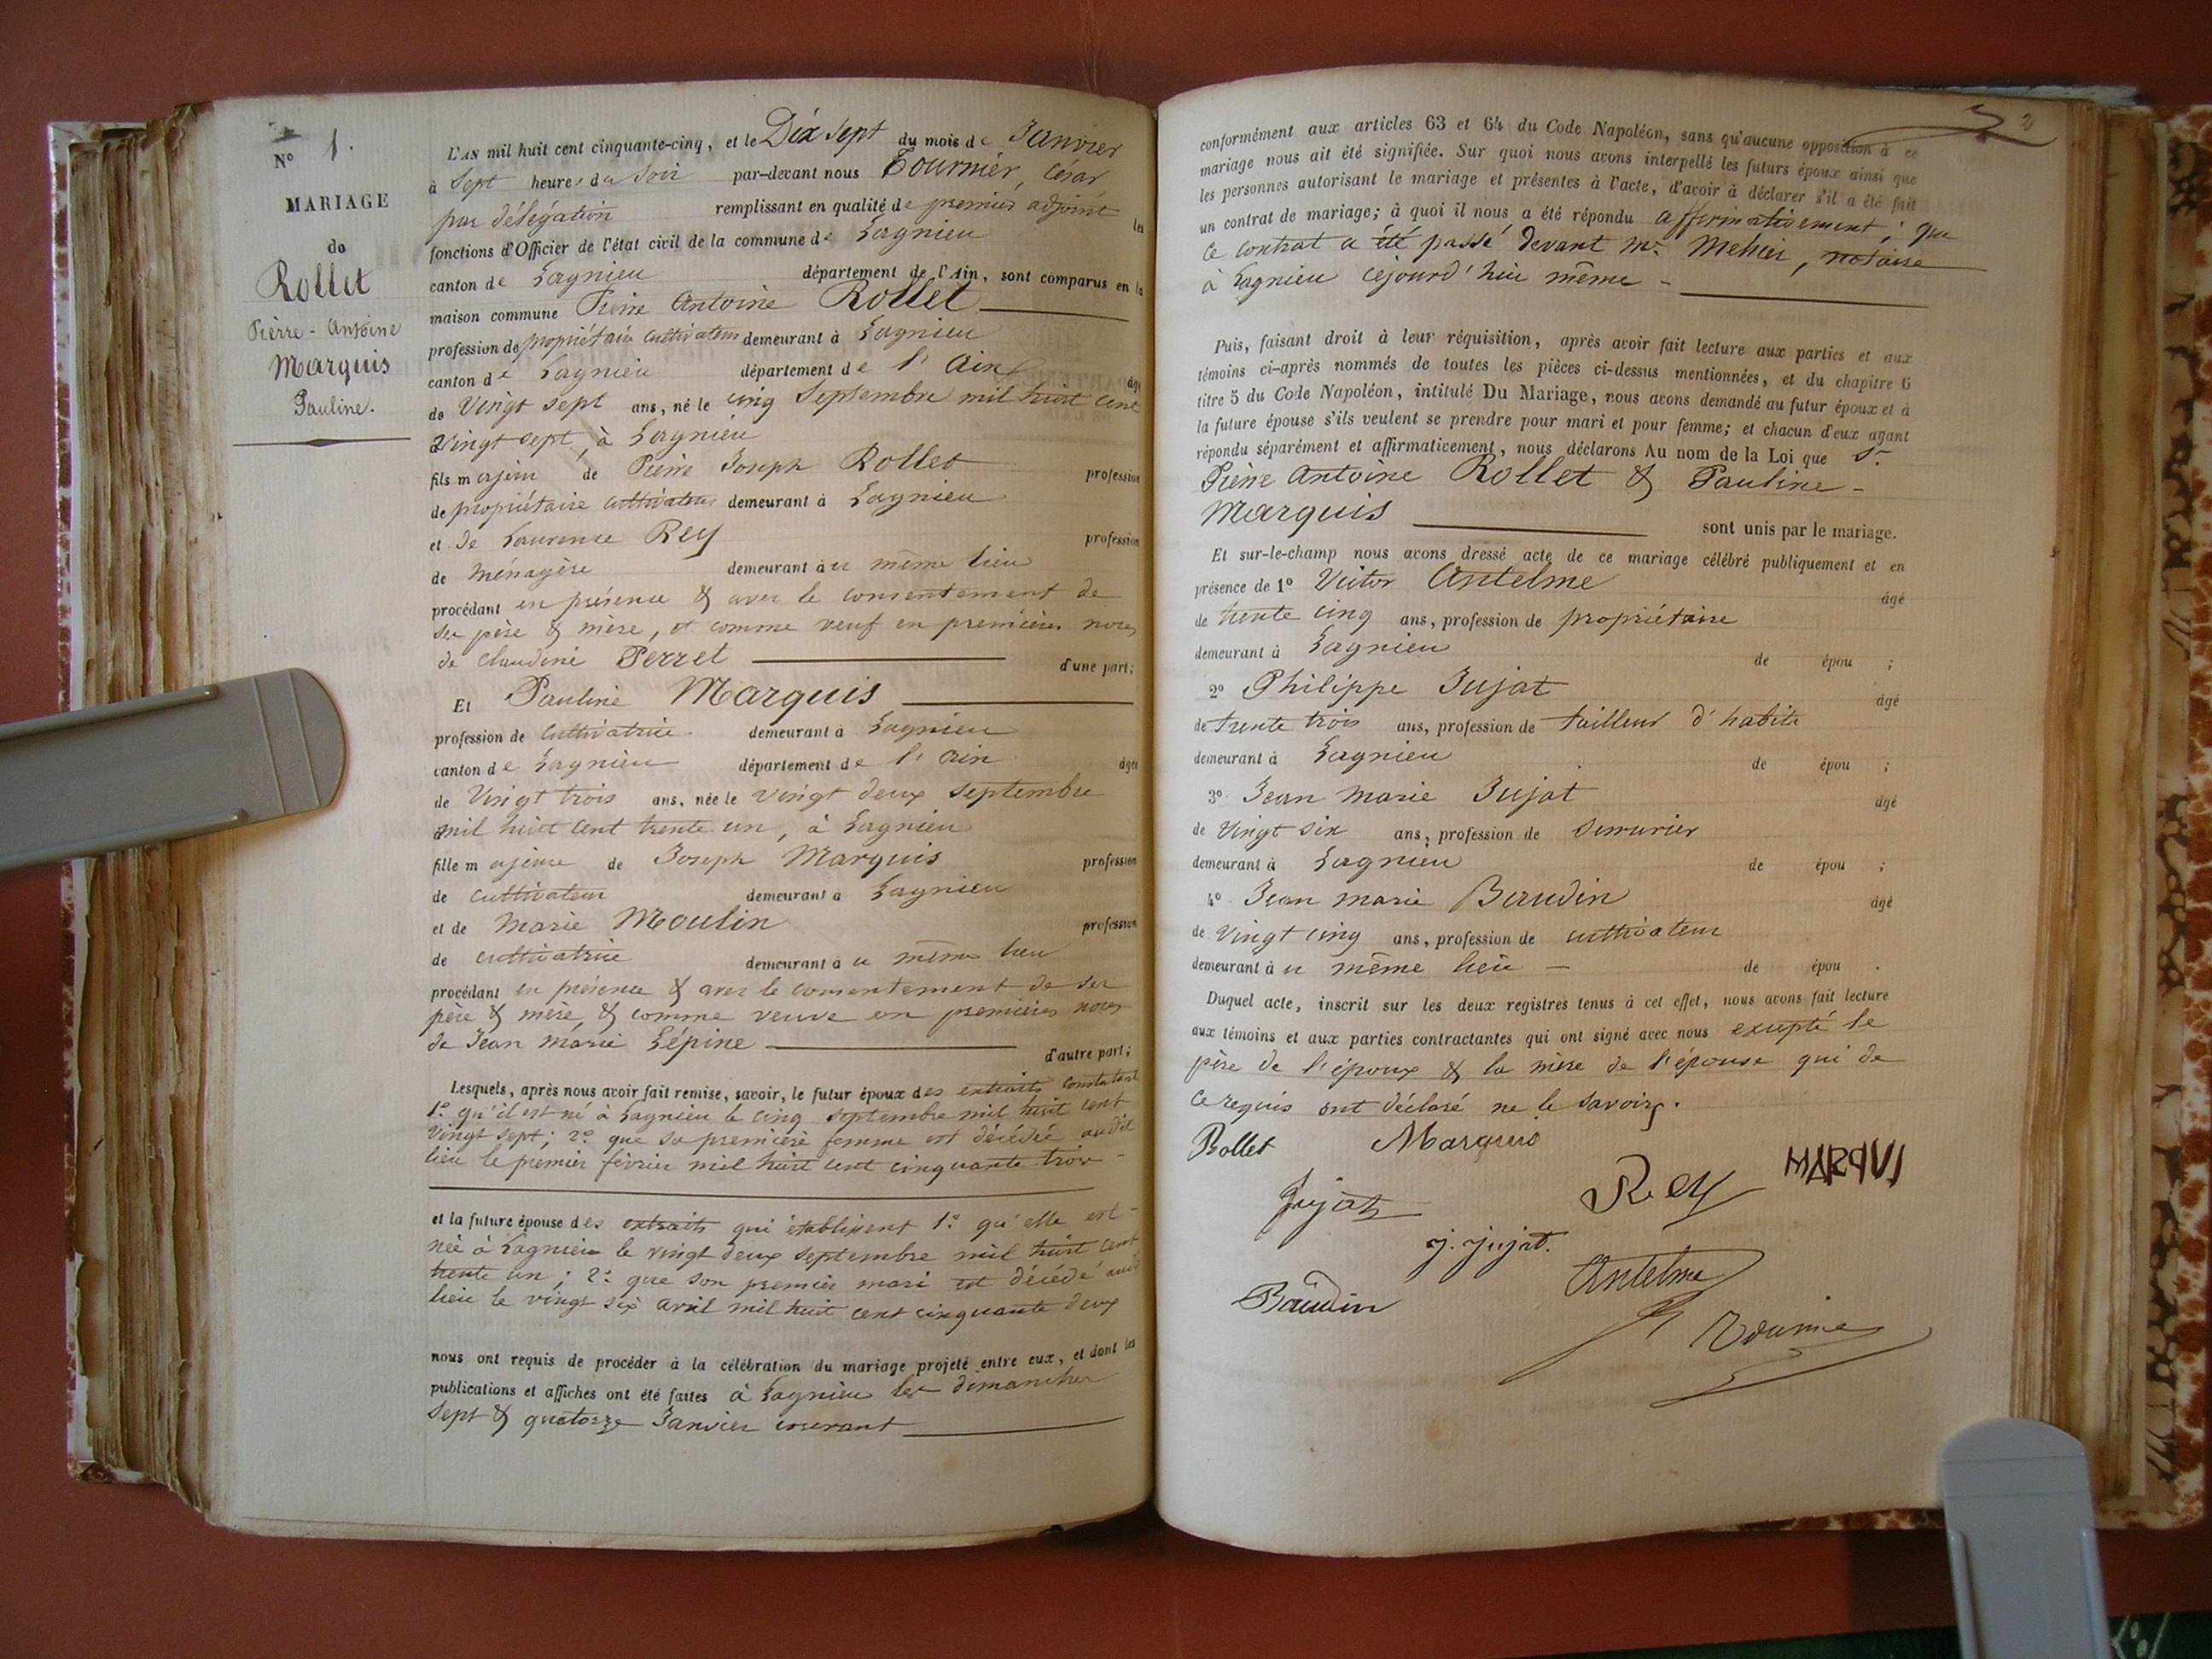 N° 1.
MARIAGE
de
Rollet
Pierre - Antoine
Marquis
Pauline.
L'AN mil huit cent cinquante-cinq, et le Dix sept du mois de Janvier
à Sept heures du Soir par-devant nous Tournier, César,
par délégation remplissant en qualité de premier adjoint les
fonctions d'Officier de l'état civil de la commune de Lagnieu
canton de Lagnieu département de l'Ain, sont comparus en la
maison commune Pierre Antoine Rollet
profession de propriétaire cultivateur demeurant à Lagnieu
canton de Lagnieu département de l'Ain âgé
de Vingt sept ans, né le cinq Septembre mil huit cent
Vingt sept, à Lagnieu
fils majeur de Pierre Joseph Rollet profession
de propriétaire cultivateur demeurant à Lagnieu
et de Laurence Rey profession
de Ménagère demeurant à u même lieu
procédant en présence & avec le consentement de
ses père & mère, et comme veuf en premières noces
de Claudine Perret d'une part;
Et Pauline Marquis
profession de Cultivatrice demeurant à Lagnieu
canton de Lagnieu département de l'Ain âgée
de Vingt trois ans, née le vingt deux Septembre
mil huit cent trente un, à Lagnieu
fille majeure de Joseph Marquis profession
de cultivateur demeurant à Lagnieu
et de Marie Moulin profession
de cultivatrice demeurant à u même lieu
procédant en présence & avec le consentement de ses
père & mère, & comme veuve en premières noces
de Jean Marie Lépine d'autre part;
Lesquels, après nous avoir fait remise, savoir, le futur époux des extraits constatant
1° qu'il est né à Lagnieu le cinq septembre mil huit cent
Vingt sept; 2° que sa première femme est décédée audit
lieu le premier février mil huit cent cinquante trois -
et la future épouse des extraits qui établissent 1° qu'elle est
née à Lagnieu le vingt deux septembre mil huit cent
trente un; 2° que son premier mari est décédé audit
lieu le vingt six avril mil huit cent cinquante deux
nous ont requis de procéder à la célébration du mariage projeté entre eux, et dont les
publications et affiches ont été faites à Lagnieu les dimanches
sept & quatorze Janvier courant
2
conformément aux articles 63 et 64 du Code Napoléon, sans qu'aucune opposition à ce
mariage nous ait été signifiée. Sur quoi nous avons interpellé les futurs époux ainsi que
les personnes autorisant le mariage et présentes à l'acte, d'avoir à déclarer s'il a été fait
un contrat de mariage; à quoi il nous a été répondu affirmativement; que
ce contrat a été passé devant Me. Mehier, notaire
à Lagnieu cejourd'hui même -
Puis, faisant droit à leur réquisition, après avoir fait lecture aux parties et aux
témoins ci-après nommés de toutes les pièces ci-dessus mentionnées, et du chapitre 6
titre 5 du Code Napoléon, intitulé Du Mariage, nous avons demandé au futur époux et à
la future épouse s'ils veulent se prendre pour mari et pour femme; et chacun d'eux ayant
répondu séparément et affirmativement, nous déclarons Au nom de la Loi que Sr.
Pierre Antoine Rollet & Pauline -
Marquis sont unis par le mariage.
Et sur-le-champ nous avons dressé acte de ce mariage célébré publiquement et en
présence de 1° Victor Antelme âgé
de trente cinq ans, profession de propriétaire
demeurant à Lagnieu de épou ;
2° Philippe Jujat âgé
de trente trois ans, profession de tailleur d'habits
demeurant à Lagnieu de épou ;
3° Jean Marie Jujat âgé
de Vingt six ans, profession de Serrurier
demeurant à Lagnieu de épou ;
4° Jean Marie Baudin âgé
de Vingt cinq ans, profession de cultivateur
demeurant à u même lieu - de épou .
Duquel acte, inscrit sur les deux registres tenus à cet effet, nous avons fait lecture
aux témoins et aux parties contractantes qui ont signé avec nous excepté le
père de l'époux & la mère de l'épouse qui de
ce requis ont déclaré ne le savoir.
Rollet Marquis
Jujat Rey MARQUI
J. Jujat.
Baudin Antelme
Tournier